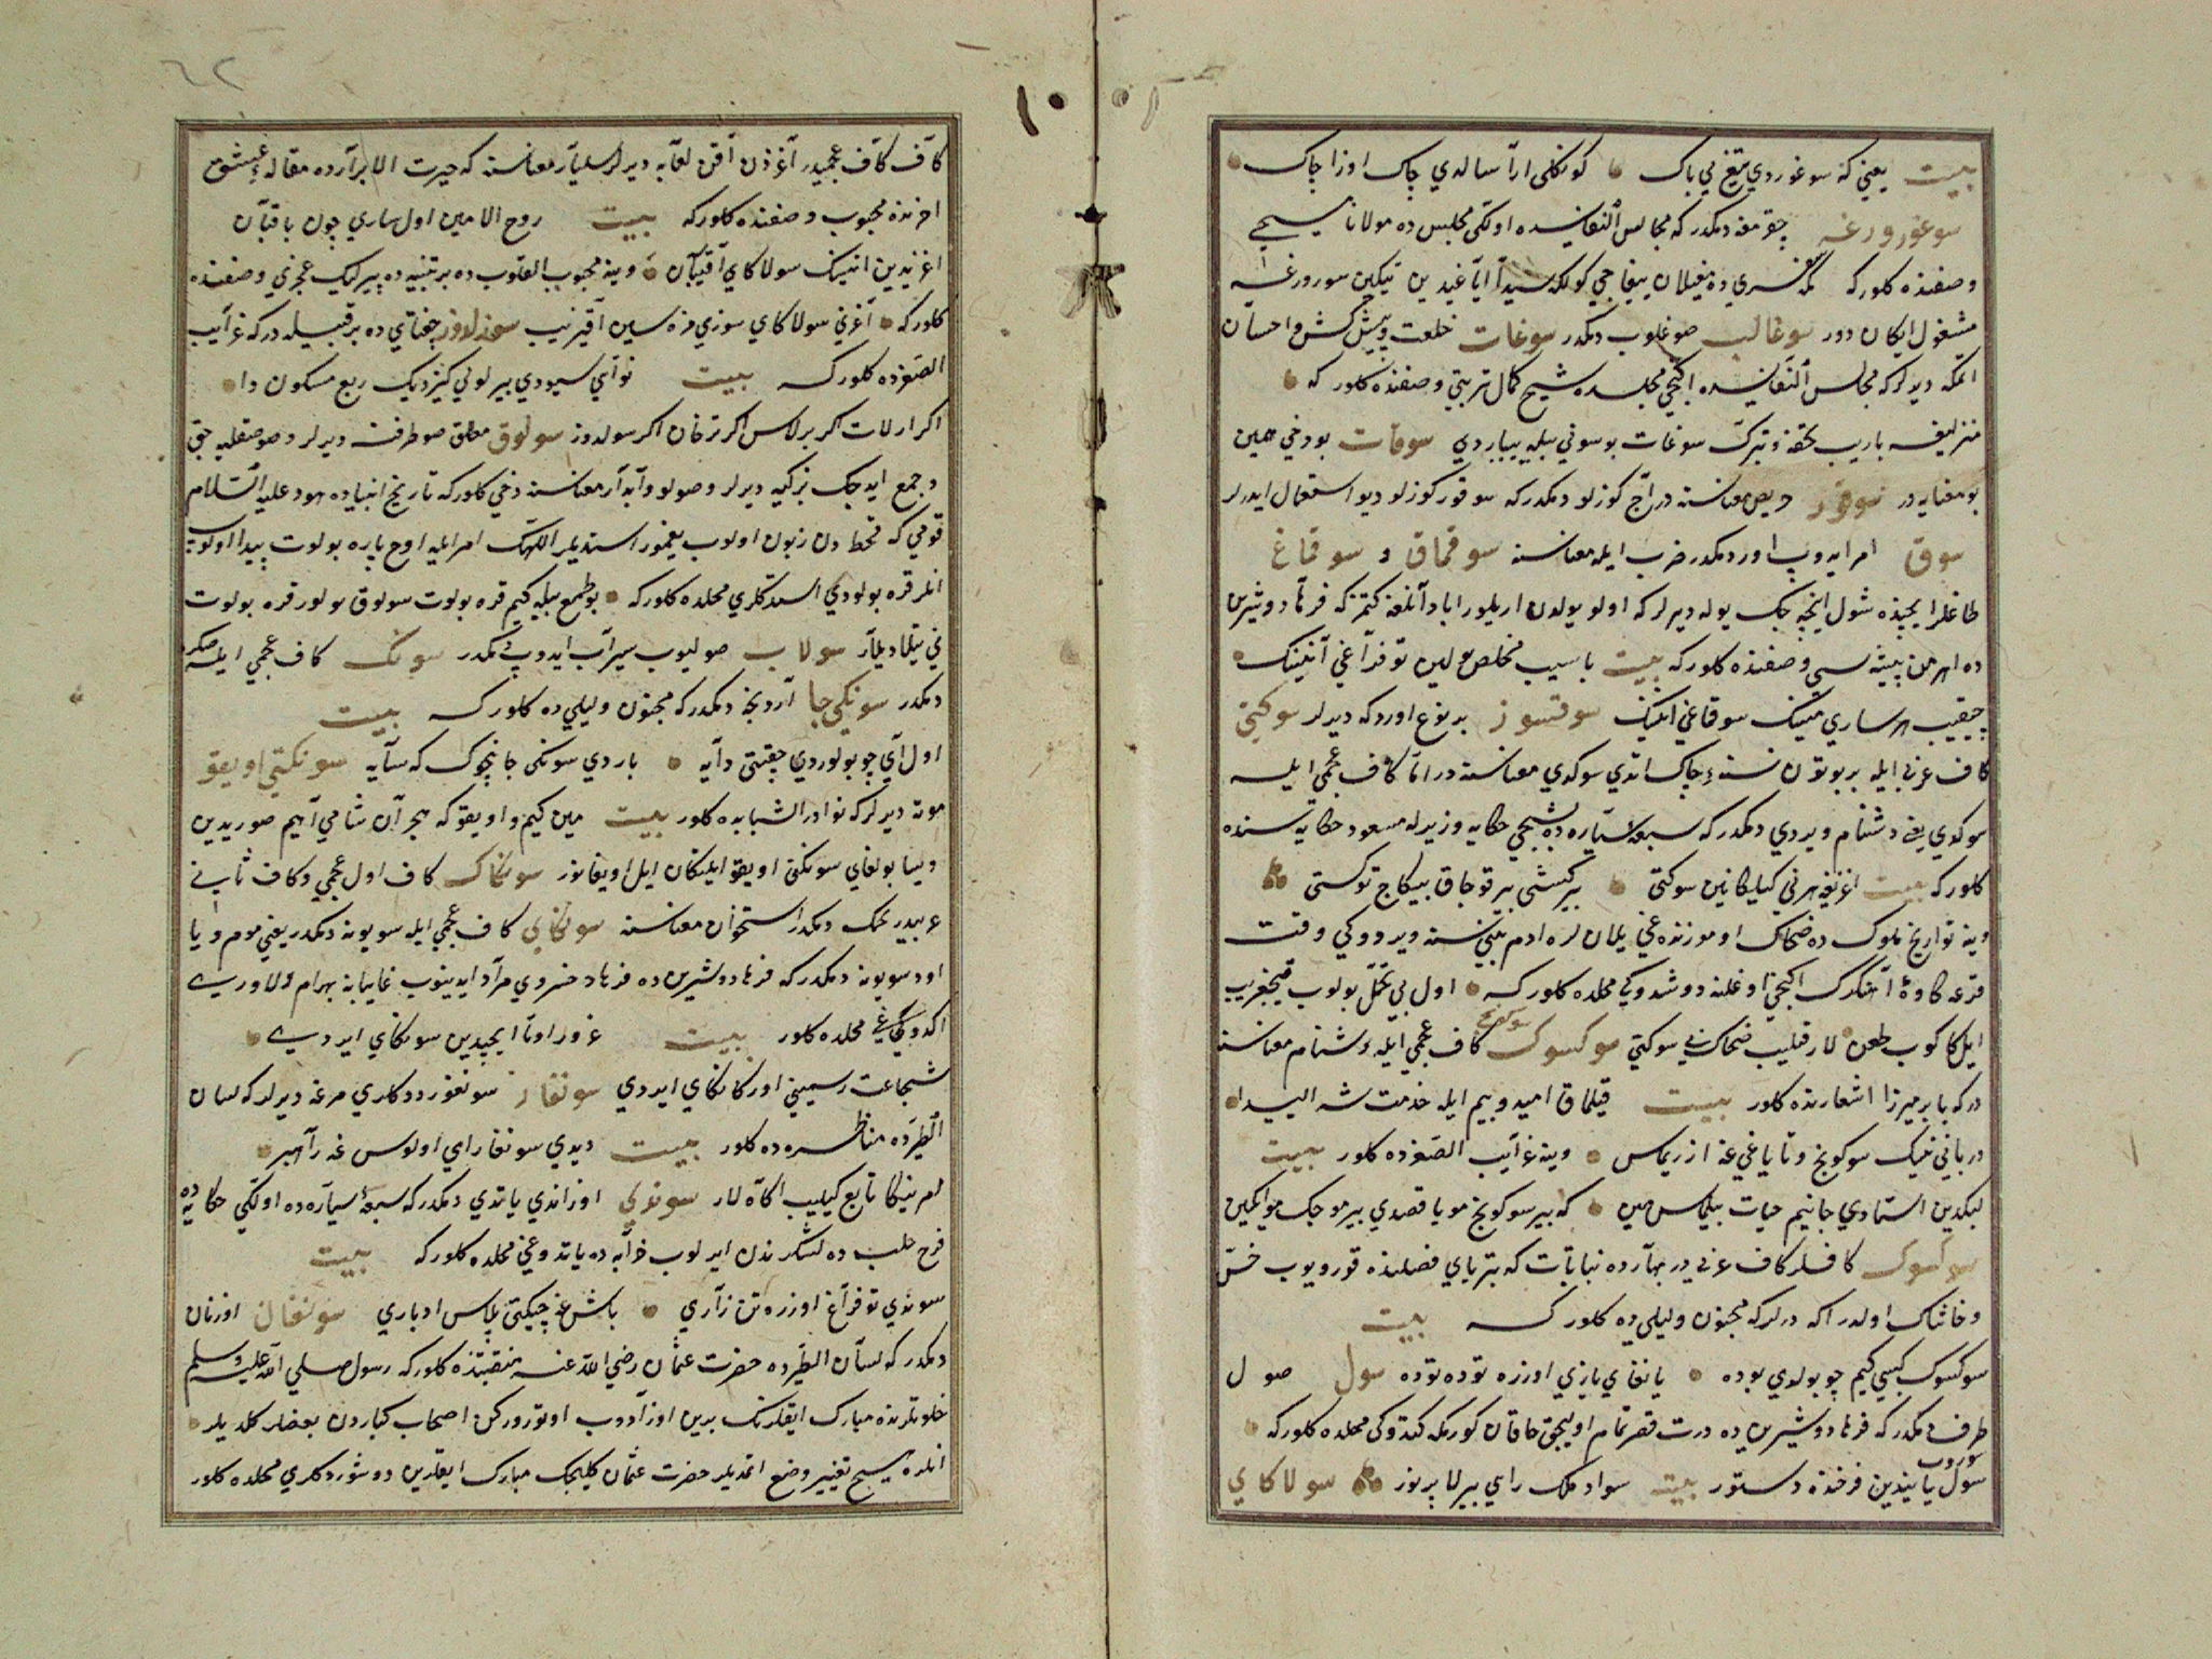 بيت يعني كه سوغوردي تيغ ني باك كونكلى ارا سالدي چاك اوزا چاك
سوغورورغه چقرمغه ديمكدر كه مجالس النفايسده اولكى مجلس ده مولانا مسيحي
وصفنده كلور كه ده مغيلان يغاجي كولكه سيدا اياغيدين تيكين سورورغه
مشغول ايكان دور سوغالب صوغلوب ديمكدر سوغات خلعت وپيشكش واحسان
ايتمكه ديرلر كه مجالس النفايسده ايكنجي مجلسده شيخ كمال تربتي وصفنده كلور كه
منزليغه باريب تحفه وتبرك سوغات بوسوني بيله يباردي سوقات بو دخي همين
بو معنايه در سوقور حريص معناسنه در آج كوزلو ديمكدر كه سوقور كوزلو ديو استعمال ايدرلر
سوق امر ايدوب اور ديمكدر ضرب ايله معناسنه سوقماق و سوقاغ
طاغلر ايچنده شول اينجه جك يوله ديرلر كه اولو يولدن اريلور ابادانلغه كتمز كه فرهاد وشيرين
ده اهرمن بيشه سى وصفنده كلور كه بيت باسيب مخلص يولين توفراغى آنينك
چيقيب هر ساري مينك سوقاغي انينك سوقسوز بر نوع اوردكه ديرلر سوكتي
كاف عربي ايله بر بوتون نسنه چاك اتدي سوكدي معناسنه در اما كاف عجمي ايله
سوكدي يعني دشنام ويردي ديمكدر كه سبعه سياره ده بشنجي حكايه وزيرله مسعود حكايه سنده
كلور كه بيت اغزيغه هرني كيلكانين سوكتى بير كيشى بير قوجاق يبكاج توكتى
وينه تواريخ ملوك ده ضحاك اوموزنده غى يلان لره ادم بينيسنه ويردوكى وقت
قرعه كاوه آهنكرك ايكنجي اوغلنه دوشدوكي محلده كلور كه اول بي تحمل بولوب قيچقيريب
ايل كا كوب طعن لار قيليب ضحاك ني سوكتي سوكسوك كاف عجمي ايله دشنام معناسنه
در كه بابر ميرزا اشعارنده كلور بيت قيلماق اميد وبيم ايله خدمت شه اليدا
دربانيننك سوكونج وتاياغى غه ارزيماس وينه غرايب الصغرده كلور بيت
لبكدين استادي جانيم حيات بيلماس مين كه بير سوكونج مو يا قصدي بير موجك مو ايكين
سوكسوك كافلر كاف عربي در بهارده نباتات كه يتر ياي فصلنده قورويوب خس
وخاشاك اولدر اكه ديرلر كه مجنون وليلي ده كلور كه بيت
سوكسوك كيبي كيم چو بولدي بوده يانغاي يازي اوزره توده توده سول صول
طرف ديمكدر كه فرهاد وشيرين ده درت قصر تمام اوليجق خاقان كورمكه كيتدوكى محلده كلور كه
سوروب
سول يانيدين فرخنده دستور بيت سواد ملك راي بيرلا پرنور سولاكاي
٦٢
كاف كاف عجميدر آغزدن آقن لعابه ديرلر سليار معناسنه كه حيرت الابرارده مقاله عشق
اخرنده محبوب وصفنده كلور كه بيت روح الامين اول ساري چون باقبان
اغزيدين انينك سولاكاي آقيبان وينه محبوب القلوب ده بر تنبيه ده پيرليك عجزي وصفنده
كلور كه آغزني سولاكاي سوزي مزه سين آقيزيب سولدوز جغتاي ده بر قبيله در كه غرايب
الصغرده كلور كه بيت نوائي سيودي بير لوني كيزديك ربع مسكون دا
اكر ارلات اكر برلاس اكر ترخان اكر سولدوز سولوق مطلق صو ظرفنه ديرلر وصو صقليه جق
وجمع ايدجك نركيه ديرلر وصولو وآبدار معناسنه دخي كلور كه تاريخ انبياده هود عليه السلام
قومي كه قحط دن زبون اولوب يغمور استديلر اللهك امر ايله اوچ پاره بولوت پيدا اولوب
انلر قره بولودي استدكلري محلده كلور كه بو طمع بيله كيم قره بولوت سولوق بولور قره بولوت
ني تيلاديلار سولاب صوليوب سيراب ايدوب ديمكدر سونك كاف عجمي ايله صكره
ديمكدر سونكي جا آردنجه ديمكدر كه مجنون وليلي ده كلور كه بيت
اول آي چو بولوردي چقتى دايه باردي سونكى جا نچوك كه سايه سونكتي اويقو
موته ديرلر كه نوادر الشبابده كلور بيت مين كيم واويقو كه هجران شامي آهيم صوريدين
ديسا بولغاي سونكتى اويقو ايلتكان ايل اويغانور سونكاك كاف اول عجمي وكاف ثاني
عربيدر كمك ديمكدر استخوان معناسنه سونكاي كاف عجمي ايله سويونه ديمكدر يعني موم ويا
اود سويونه ديمكدر كه فرهاد وشيرين ده فرهاد خسروي مراد ايدينوب غايبانه بهرام دلاوري
اكدوكي محلده كلور بيت غرور اوتا ايچيدين سونكاي ايردي
شجاعت رسميني اوركانكاي ايردي سونقار سونقور ددكلري مرغه ديرلر كه لسان
الطيرده مناظره ده كلور بيت ديدي سونقار اي اولوس غه راهبر
امرينكا تابع كيليب اكاه لار سوندي اوزاندي ياتدي ديمكدر كه سبعه سياره ده اولكي حكايه ده
فرخ حلب ده لشكرندن ايرلوب خرابه ده ياتدوغى محلده كلور كه بيت
سوندي توفراغ اوزره تن زاري باش غه چيكتى پلاس ادباري سونغان اوزنان
ديمكدر كه لسان الطيرده حضرت عثمان رضي الله عنه منقبتنده كلور كه رسول صلي الله عليه وسلم
خلوتلرنده مبارك اياقلرينك بيرين اوزادوب اولتورورلركن اصحاب كباردن بعضلر كلديلر
انلره هيچ تغيير وضع اتمديلر حضرت عثمان كليجك مبارك اياقلرين دوشوردكلري محلده كلور